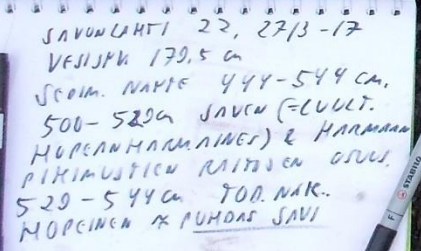 SAVONLAHTI 22, 27/3-17
VESISYV. 179,5 cm
SEDIM. NÄYTE 444-544 cm,
500-529cm SAVEN (=LUULT.
HOPEANHARMAINES) & HARMAAN
PIHIMUSTIEN RAITOJEN OSUUS.
529-544 cm TOD. NÄK.
HOPEINEN & PUHDAS SAVI
STABILO
F